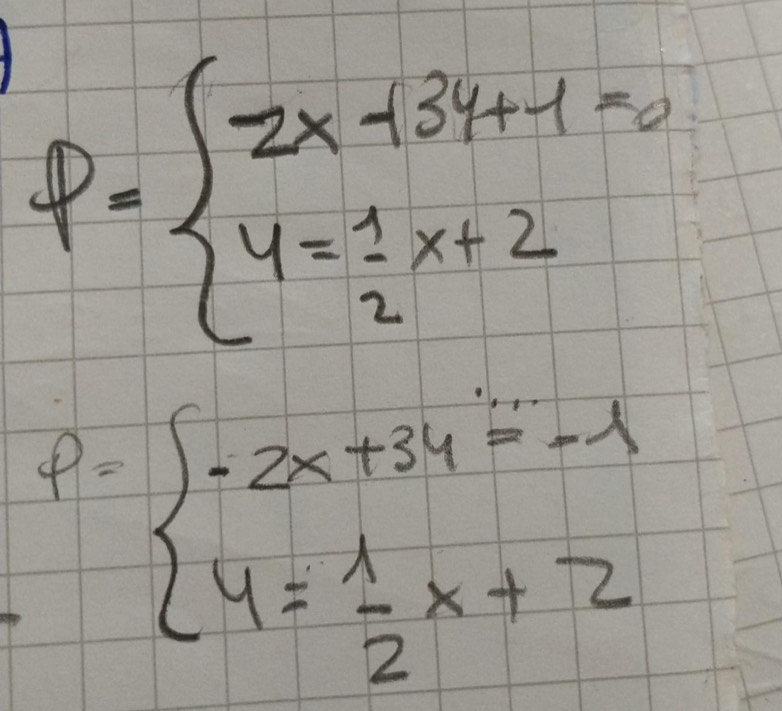 P = { -2x + 3y + 1 = 0
y = 1/2 x + 2
P = { -2x + 3y = -1
y = 1/2 x + 2